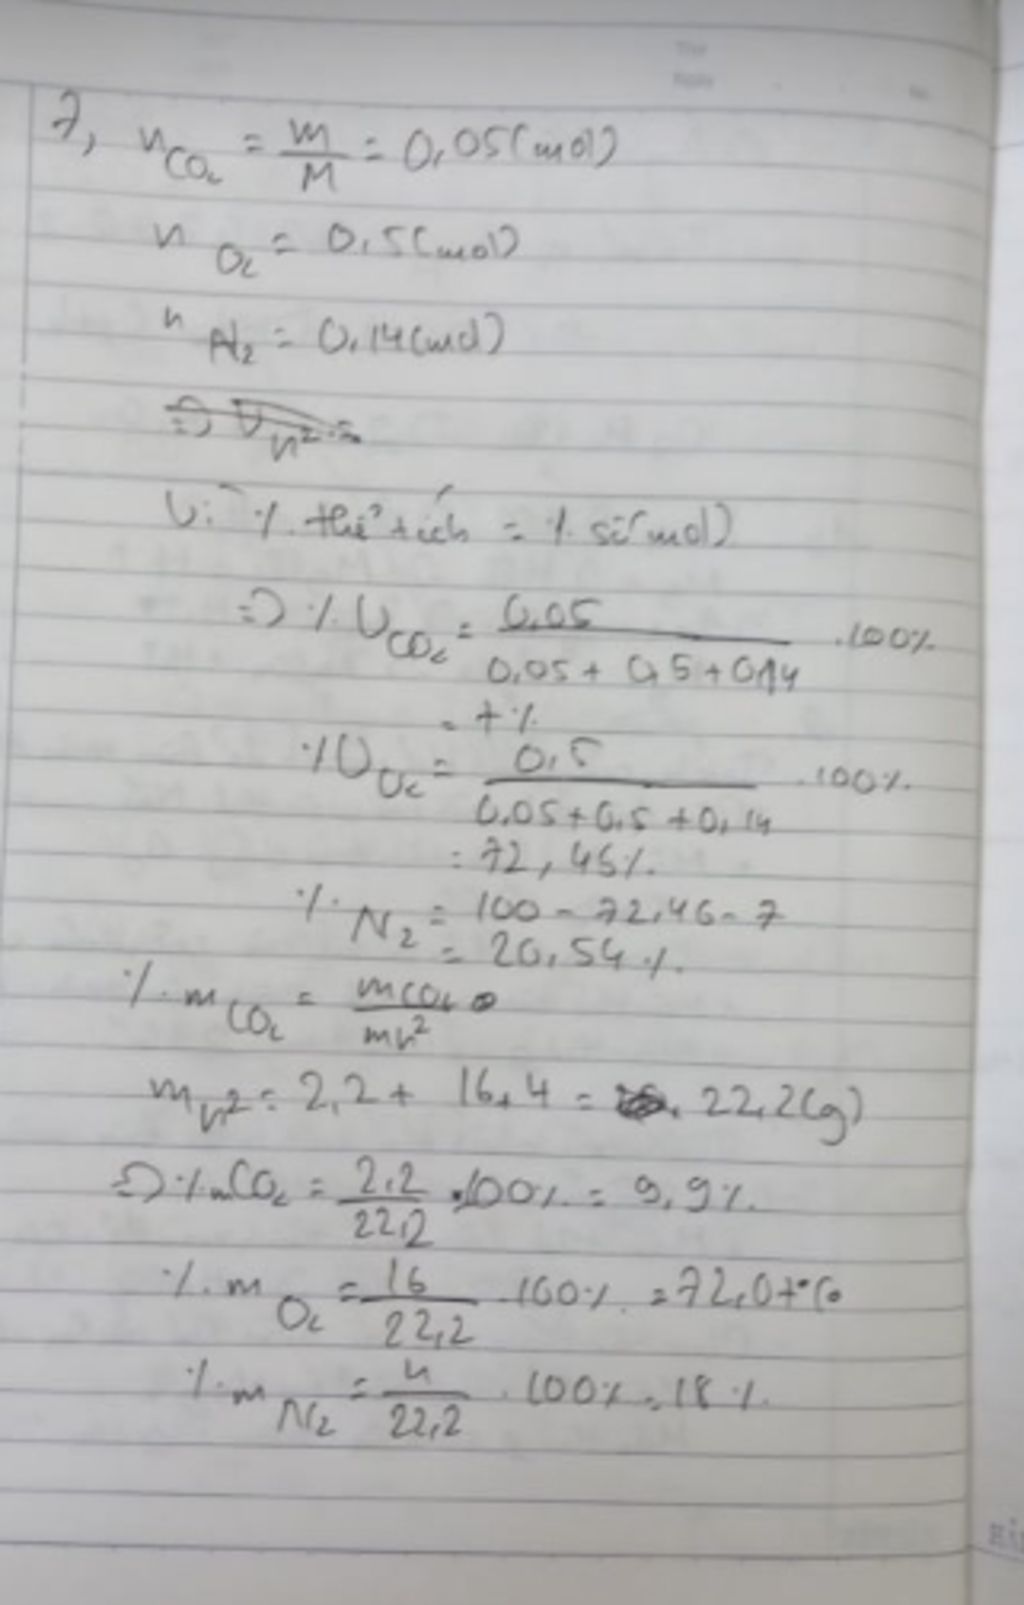 7, nCO₂ = m/M = 0,05(mol)
nO₂ = 0,5(mol)
nN₂ = 0,14(mol)
Vì % thể tích = % số mol)
=> % VCO₂ = 0,05/(0,05 + 0,5 + 0,14) .100%
= 7%
% VO₂ = 0,5/(0,05 + 0,5 + 0,14) .100%
= 72,46%
% N₂ = 100 - 72,46 - 7
= 20,54%.
% mCO₂ = mCO₂/mh²
mh² = 2,2 + 16 + 4 = 22,2(g)
=> % mCO₂ = 2,2/22,2 .100% = 9,9%.
% mO₂ = 16/22,2 .100% = 72,07%
% mN₂ = 4/22,2 .100% = 18%.